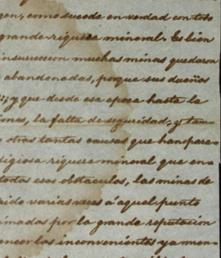 gen, como sucede en verdad en todo
grande riqueza mineral. Es bien
insureccion muchas minas quedaron
abandonadas, porque sus dueños
y que desde esa epoca hasta la
ones, la falta de seguridad, y tan
otras tantas causas que han para
digiosa riqueza mineral que en a
todos esos obstaculos, las minas de
rido varias veces a aquel punto
imados por la grande reputacion
encer los inconvenientes ya men